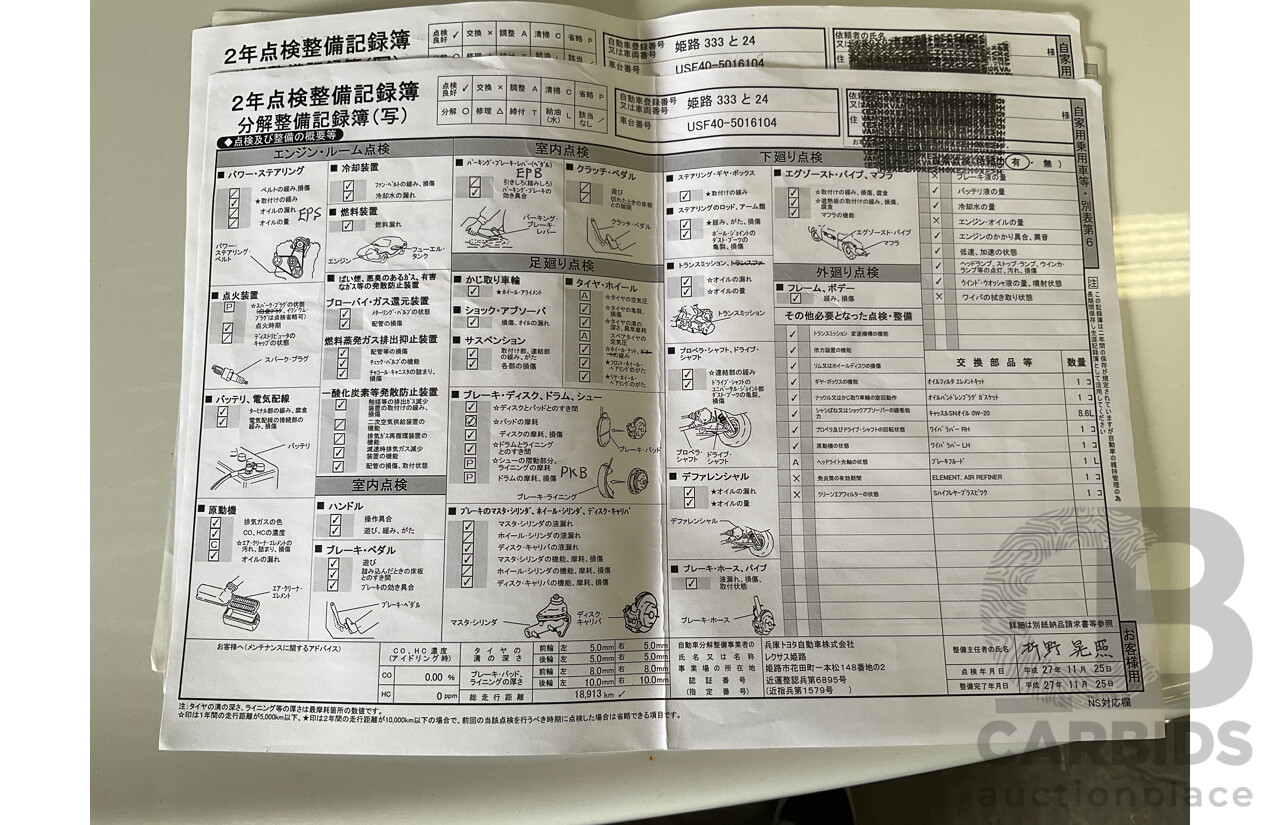 2年点検整備記録簿
点検良好 ✓ 交換 × 調整 A 清掃 C 省略 P
自動車登録番号又は車両番号 姫路 333 と 24
依頼者の氏名
様
車台番号 USF40-5016104
自家用
2年点検整備記録簿
分解整備記録簿(写)
点検良好 ✓ 交換 × 調整 A 清掃 C 省略 P
分解 ○ 修理 △ 締付 T 給油(水) L 該当なし /
自動車登録番号又は車両番号 姫路 333 と 24
車台番号 USF40-5016104
様
(有・無)
自家用乗用車等・別表第6
◆点検及び整備の概要等
エンジン・ルーム点検
■ パワー・ステアリング
ベルトの緩み、損傷
★取付けの緩み
オイルの漏れ
オイルの量
EPS
パワー・ステアリング・ベルト
■ 点火装置
P ☆スパーク・プラグの状態
点火時期
ディストリビュータのキャップの状態
スパーク・プラグ
■ バッテリ、電気配線
ターミナル部の緩み、腐食
電気配線の接続部の緩み、損傷
バッテリ
■ 原動機
排気ガスの色
CO、HCの濃度
C ☆エア・クリーナ・エレメントの汚れ、詰まり、損傷
オイルの漏れ
エア・クリーナ・エレメント
■ 冷却装置
ファン・ベルトの緩み、損傷
冷却水の漏れ
■ 燃料装置
燃料漏れ
エンジン
フューエル・タンク
■ ばい煙、悪臭のあるガス、有害なガス等の発散防止装置
ブローバイ・ガス還元装置
メターリング・バルブの状態
配管の損傷
燃料蒸発ガス排出抑止装置
配管等の損傷
チェック・バルブの機能
チャコール・キャニスタの詰まり、損傷
一酸化炭素等発散防止装置
触媒等の排出ガス減少装置の取付けの緩み、損傷
二次空気供給装置の機能
排気ガス再循環装置の機能
減速時排気ガス減少装置の機能
配管の損傷、取付状態
室内点検
■ ハンドル
操作具合
遊び、緩み、がた
■ ブレーキ・ペダル
遊び
踏み込んだときの床板とのすき間
ブレーキの効き具合
ブレーキ・ペダル
室内点検
■ パーキング・ブレーキ・レバー(ペダル)
EPB
引きしろ(踏みしろ)
パーキング・ブレーキの効き具合
パーキング・ブレーキ・レバー
■ クラッチ・ペダル
遊び
切れたときの床板との隙間
クラッチ・ペダル
足廻り点検
■ かじ取り車輪
★ホイール・アライメント
■ ショック・アブソーバ
損傷、オイルの漏れ
■ サスペンション
取付部、連結部の緩み、がた
各部の損傷
■ タイヤ・ホイール
A ☆タイヤの空気圧
☆タイヤの亀裂、損傷
☆タイヤの溝の深さ、異常摩耗
A スペアタイヤの空気圧
★フロント・ホイール・ベアリングのがた
★リヤ・ホイール・ベアリングのがた
■ ブレーキ・ディスク、ドラム、シュー
☆ディスクとパッドとのすき間
☆パッドの摩耗
ディスクの摩耗、損傷
☆ドラムとライニングとのすき間
P ☆シューの摺動部分、ライニングの摩耗
P ドラムの摩耗、損傷
PKB
ブレーキ・パッド
ブレーキ・ライニング
■ ブレーキのマスタ・シリンダ、ホイール・シリンダ、ディスク・キャリパ
マスタ・シリンダの液漏れ
ホイール・シリンダの液漏れ
ディスク・キャリパの液漏れ
マスタ・シリンダの機能、摩耗、損傷
ホイール・シリンダの機能、摩耗、損傷
ディスク・キャリパの機能、摩耗、損傷
マスタ・シリンダ
ディスク・キャリパ
下廻り点検
■ ステアリング・ギヤ・ボックス
★取付けの緩み
■ ステアリングのロッド、アーム類
★緩み、がた、損傷
ボール・ジョイントのダスト・ブーツの亀裂、損傷
■ トランスミッション、トランスファ
☆オイルの漏れ
☆オイルの量
トランスミッション
■ プロペラ・シャフト、ドライブ・シャフト
☆連結部の緩み
ドライブ・シャフトのユニバーサル・ジョイント部ダスト・ブーツの亀裂、損傷
プロペラ・シャフト
ドライブ・シャフト
■ デファレンシャル
★オイルの漏れ
★オイルの量
デファレンシャル
■ ブレーキ・ホース、パイプ
液漏れ、損傷、取付状態
ブレーキ・ホース
■ エグゾースト・パイプ、マフラ
☆取付けの緩み、損傷、腐食
☆遮熱板の取付けの緩み、損傷、腐食
マフラの機能
エグゾースト・パイプ
マフラ
外廻り点検
■ フレーム、ボデー
緩み、損傷
その他必要となった点検・整備
✓ トランスミッション 変速機構の機能
✓ 倍力装置の機能
✓ リム又はホイールディスクの損傷
✓ ギヤ・ボックスの機能
✓ ナックル又はかじ取り車軸の旋回動作
✓ シャシばね又はショックアブソーバーの緩衝能力
✓ プロペラ及びドライブ・シャフトの回転状態
✓ 原動機の状態
A ヘッドライト光軸の状態
× 発炎筒の有効期間
× クリーンエアフィルターの状態
× ブレーキ液の量
✓ バッテリ液の量
✓ 冷却水の量
× エンジン・オイルの量
✓ エンジンのかかり具合、異音
✓ 低速、加速の状態
✓ ヘッドランプ、ストップ・ランプ、ウインカ・ランプ等の点灯、汚れ、損傷
✓ ウインド・ウオッシャ液の量、噴射状態
× ワイパの拭き取り状態
交換部品等 数量
オイルフィルタ エレメントキット 1 コ
オイルドレンプラグ ガスケット 1 コ
キャッスルSNオイル 0W-20 8.6L
ワイパラバー RH 1 コ
ワイパラバー LH 1 コ
ブレーキフルード 1 L
ELEMENT, AIR REFINER 1 コ
Sハイフレヤープラスピツク 1 コ
詳細は別紙納品請求書等参照
注 この記録簿は二年間の保存が規定されていますが自動車の維持管理の為長期間保存し生涯記録簿として活用してください
お客様へ(メンテナンスに関するアドバイス)
CO、HC濃度(アイドリング時)
CO 0.00 %
HC 0 ppm
タイヤの溝の深さ 前輪 左 5.0mm 右 5.0mm
後輪 左 5.0mm 右 5.0mm
ブレーキ・パッド、ライニングの厚さ 前輪 左 8.0mm 右 8.0mm
後輪 左 10.0mm 右 10.0mm
総走行距離 18,913 km ✓
自動車分解整備事業者の氏名又は名称 兵庫トヨタ自動車株式会社
レクサス姫路
事業場の所在地 姫路市花田町一本松148番地の2
認証番号 近運整認兵第6895号
(指定番号) (近指兵第1579号 )
整備主任者の氏名
点検年月日 平成 27年 11月 25日
整備完了年月日 平成 27年 11月 25日
お客様用
注:タイヤの溝の深さ、ライニング等の厚さは最摩耗箇所の数値です。
☆印は1年間の走行距離が5,000km以下、★印は2年間の走行距離が10,000km以下の場合で、前回の当該点検を行うべき時期に点検した場合は省略できる項目です。
NS対応欄
CARBIDS
auctionplace